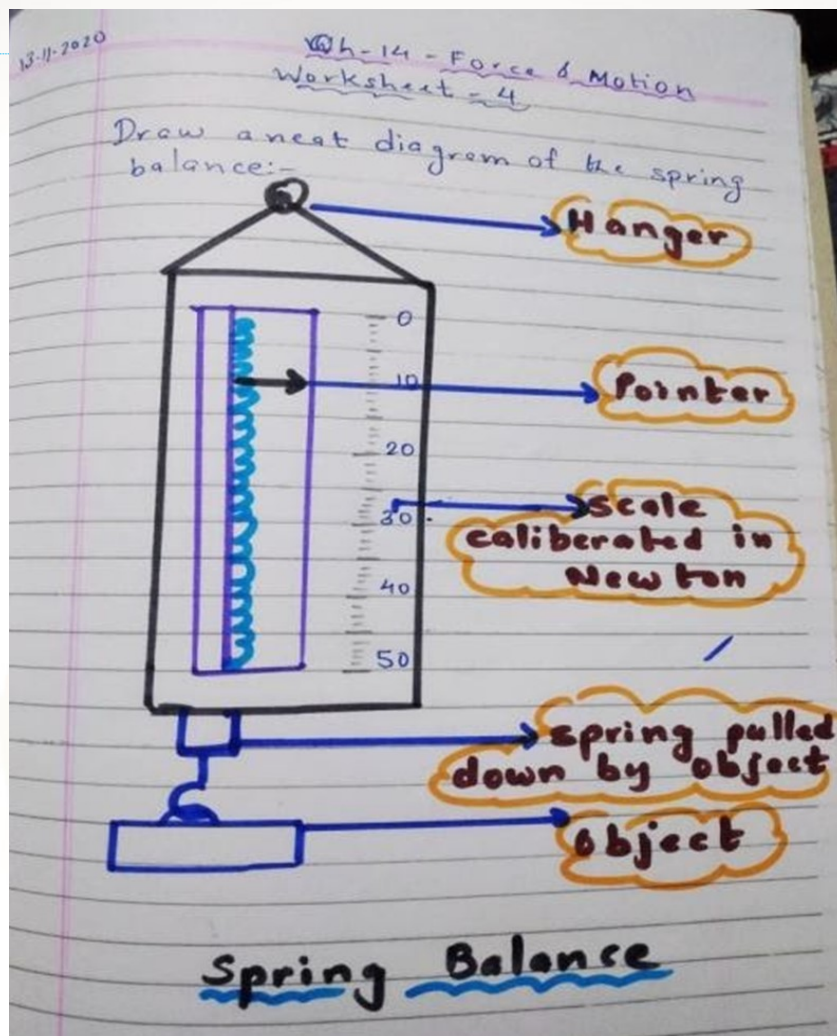 13-11-2020
Ch-14 - Force & Motion
Worksheet - 4
Draw a neat diagram of the spring
balance:-
Hanger
0
10
Pointer
20
30
scale
caliberated in
Newton
40
50
spring pulled
down by object
object
Spring Balance